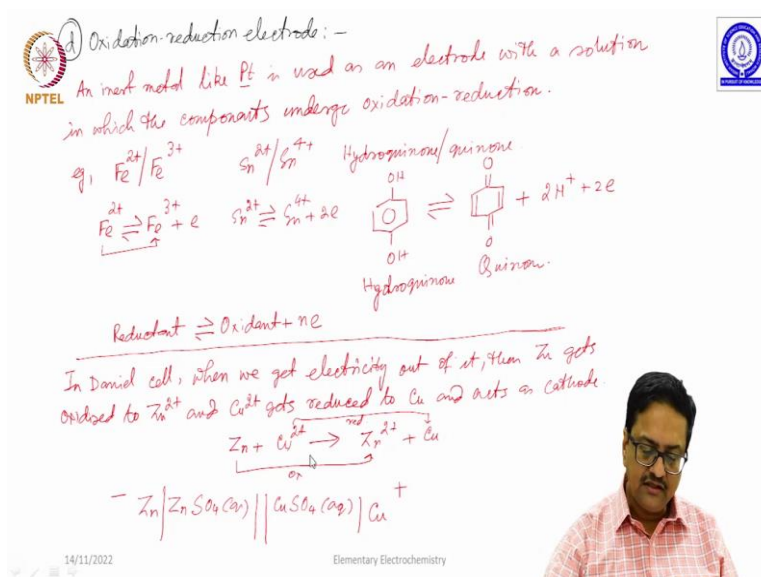 d) Oxidation-reduction electrode:-
NPTEL
An inert metal like Pt is used as an electrode with a solution
in which the components undergo oxidation-reduction.
eg, Fe²⁺/Fe³⁺ Sn²⁺/Sn⁴⁺ Hydroquinone/quinone
Fe²⁺ ⇌ Fe³⁺ + e Sn²⁺ ⇌ Sn⁴⁺ + 2e OH OH ⇌ O O + 2H⁺ + 2e
Hydroquinone Quinone
Reductant ⇌ Oxidant + ne
In Daniel cell, when we get electricity out of it, then Zn gets
oxidized to Zn²⁺ and Cu²⁺ gets reduced to Cu and acts as cathode.
red
Zn + Cu²⁺ → Zn²⁺ + Cu
ox
- Zn|ZnSO4(aq)||CuSO4(aq)|Cu +
14/11/2022 Elementary Electrochemistry